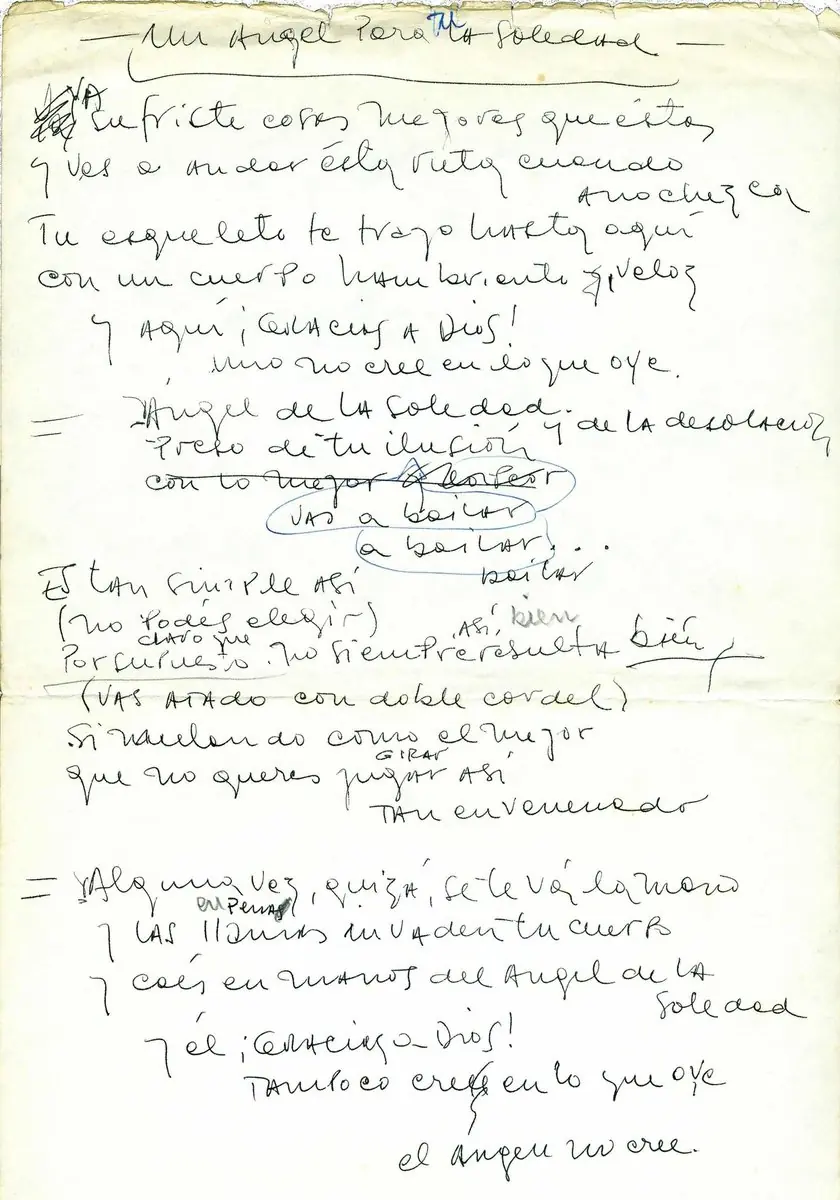 — Un Angel Para tu LA Soledad —
YA sufriste cosas mejores que éstas
y vas a andar ésta ruta cuando
anochezca
Tu esqueleto te trajo hasta aquí
con un cuerpo hambriento, veloz
y AQUÍ ¡GRACIAS A DIOS!
uno no cree en lo que oye.
= Ángel de LA Soledad.
y de LA desolación
Preso de tu ilusión
con lo mejor y lo peor
VAS a bailar
a bailar...
bailar
Es tan simple ASÍ
(no Podés elegir)
claro que ASÍ, bien
Por supuesto no siempre resulta bién,
(VAS ATADO con doble cordel)
Simulando como el mejor
GIRAR
que no queres jugar ASÍ
TAN envenenado
= Alguna vez, quizá, se te vá la mano
en Penas
y LAS llamas invaden tu cuerpo
y caés en manos del Angel de LA
Soledad
y él ¡GRACIAS a Dios!
TAMPOCO cree en lo que oye
el Angel no cree.